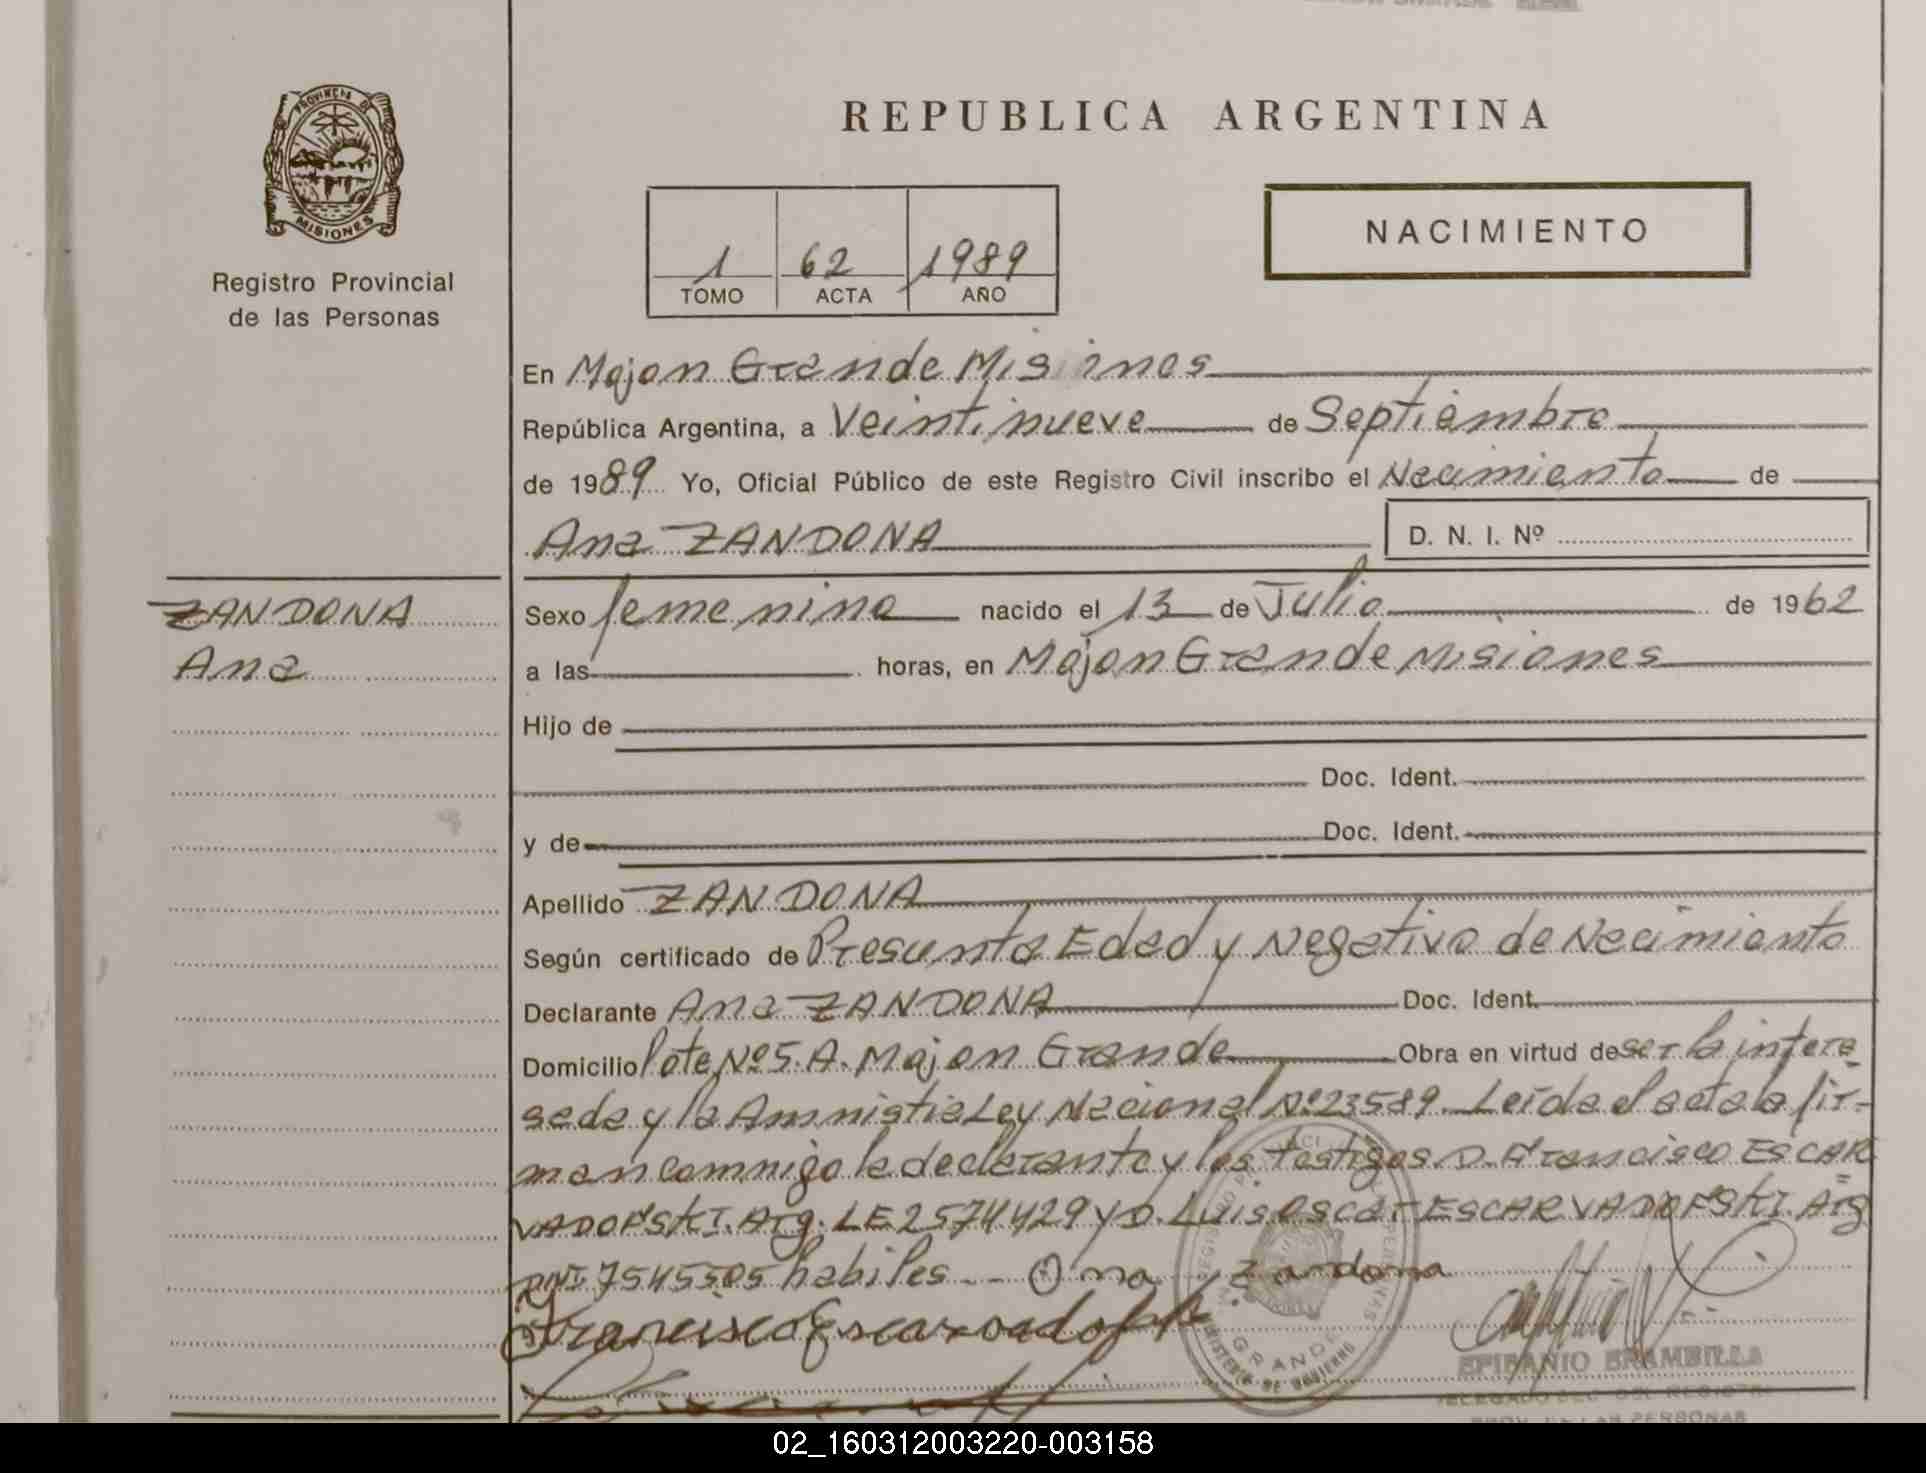 REPUBLICA ARGENTINA
PROVINCIA DE
MISIONES
Registro Provincial
de las Personas
1 62 1989
TOMO ACTA AÑO
NACIMIENTO
En Mojon Grande Misiones
República Argentina, a Veintinueve de Septiembre
de 1989 Yo, Oficial Público de este Registro Civil inscribo el Nacimiento de
Ana ZANDONA D. N. I. Nº
ZANDONA
Ana
Sexo femenino nacido el 13 de Julio de 1962
a las horas, en Mojon Grande Misiones
Hijo de
Doc. Ident.
y de Doc. Ident.
Apellido ZANDONA
Según certificado de Presunta Edad y Negativo de Nacimiento
Declarante Ana ZANDONA Doc. Ident.
Domicilio lote Nº 5. A. Mojon Grande Obra en virtud de ser la intere
sada y la Amnistia Ley Nacional Nº 23589. Leída el acta la fir-
man conmigo la declarante y los testigos D. Francisco ESCAR
VADOFSKI. Arg. LE 2574429 y D. Luis Oscar ESCARVADOFSKI. Arg
DNI 7545505 habiles. Ana Zandona
Francisco
GRANDE
MINISTERIO DE GOBIERNO
EPIFANIO BRAMBILLA
DELEGADO DEL REGISTRO
PROV. DE LAS PERSONAS
02_160312003220-003158